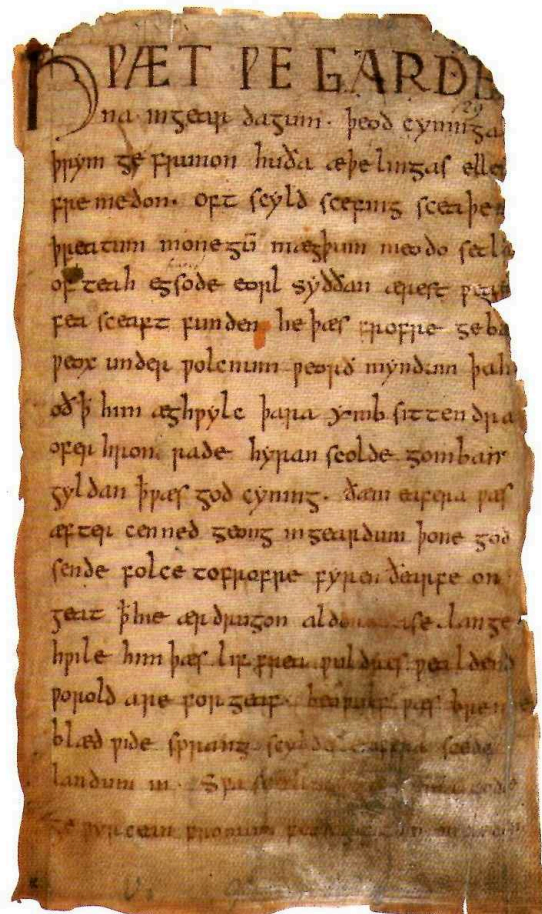 HǷÆT ǷE GARDE
na ingear dagum. þeod cyninga
þrym ge frunon huða æþelingas elle
fremedon. oft scyld scefing sceaþe
þreatum monegū mægþum meodo setla
of teah egsode eorl syððan ærest ƿear
fea sceaft funden he þæs frofre geba
ƿeox under ƿolcnum ƿeorð myndum þah
oð ꝥ him æghƿylc þara ymb sittendra
ofer hron rade hyran scolde gomban
gyldan ꝥ ƿæs god cyning. ðæm eafera ƿæs
æfter cenned geong ingeardum þone god
sende folce tofrofre fyren ðearfe on
geat ꝥ hie ær drugon aldor ase. lange
hƿile him þæs lif frea ƿuldres ƿealdend
ƿorold are for geaf. beoƿulf ƿæs breme
blæd ƿide sprang scyldes eafera scede
landum in. Sƿa gode
ge ƿyrcean fromum